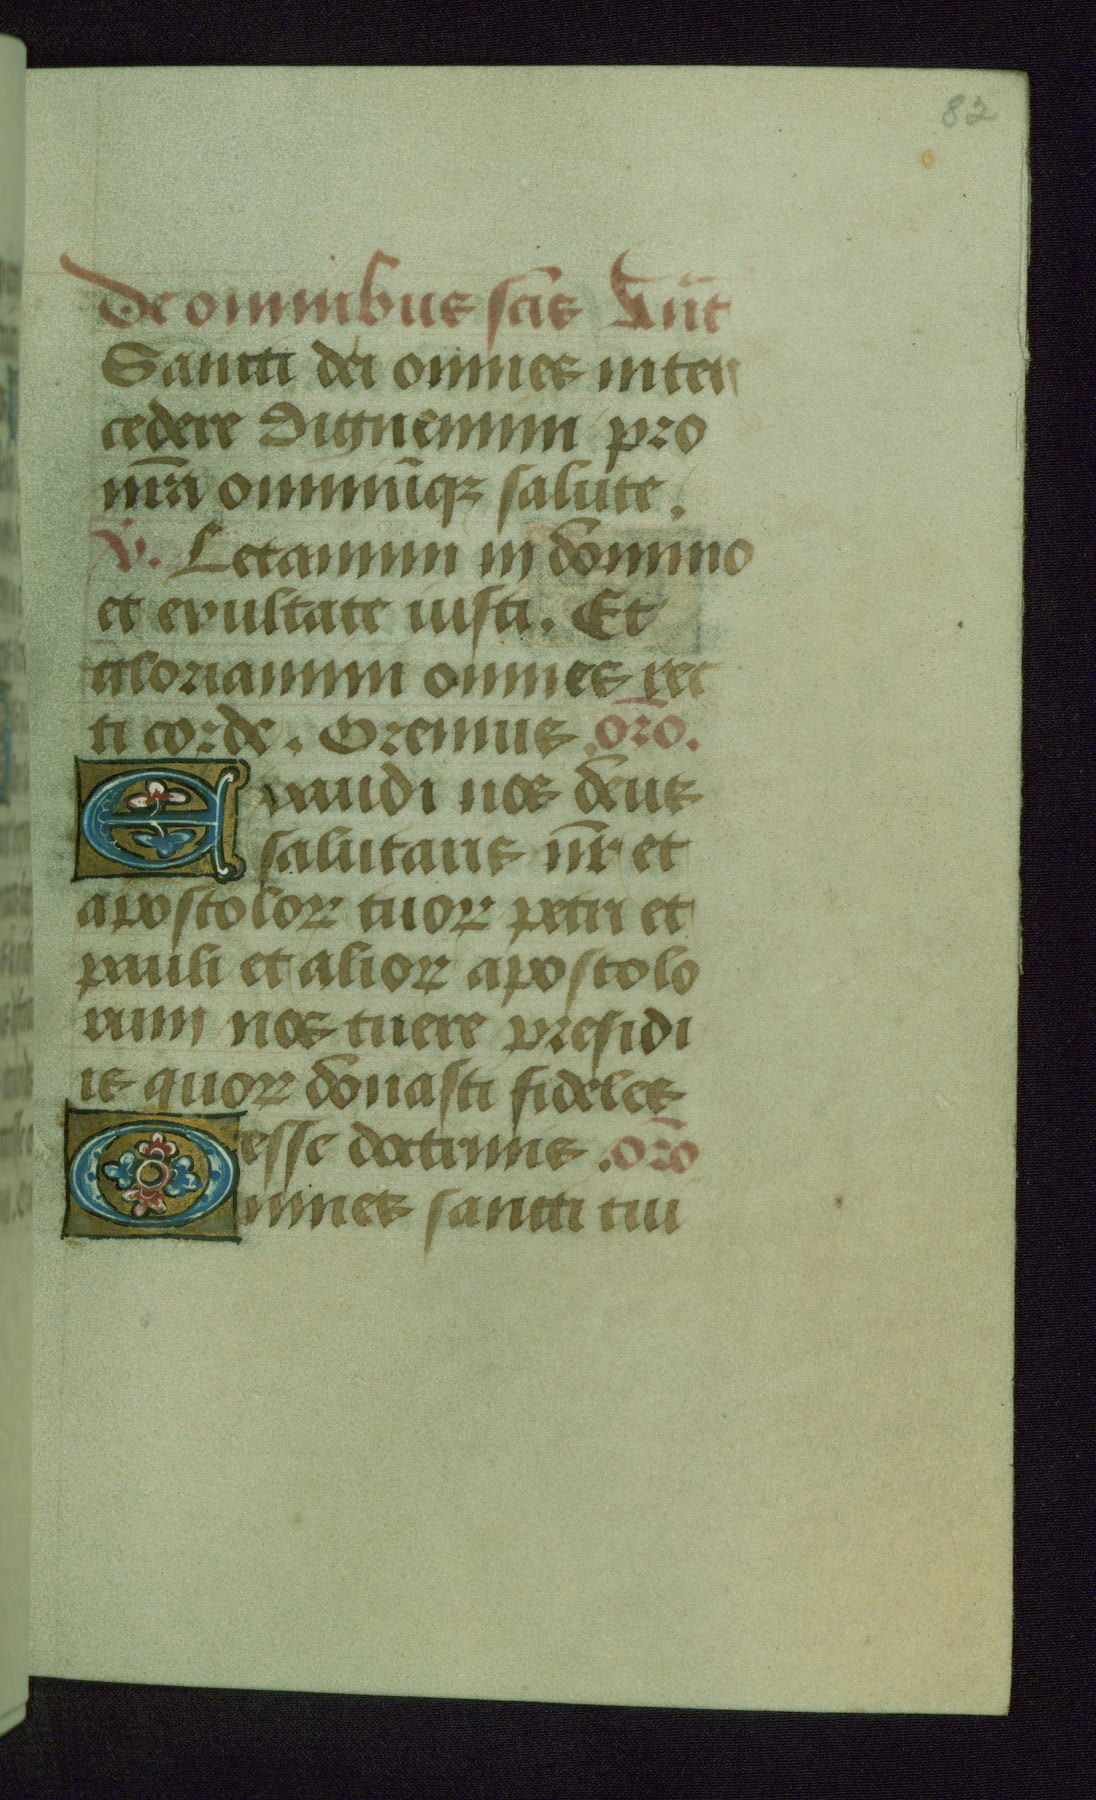 82
De omnibus scis Ant
Sancti dei omnes inter
cedere dignemini pro
nr̄a omniūqꝫ salute.
V. Letamini in domino
et exultate iusti. Et
gloriamini omnes rec
ti corde. Oremus. or̄o.
Exaudi nos deus
salutaris nr̄ et
apostoloꝝ tuoꝝ petri et
pauli et alioꝝ apostolo
rum nos tuere presidi
is quoꝝ donasti fideles
esse doctrinis. or̄o
Omnes sancti tui